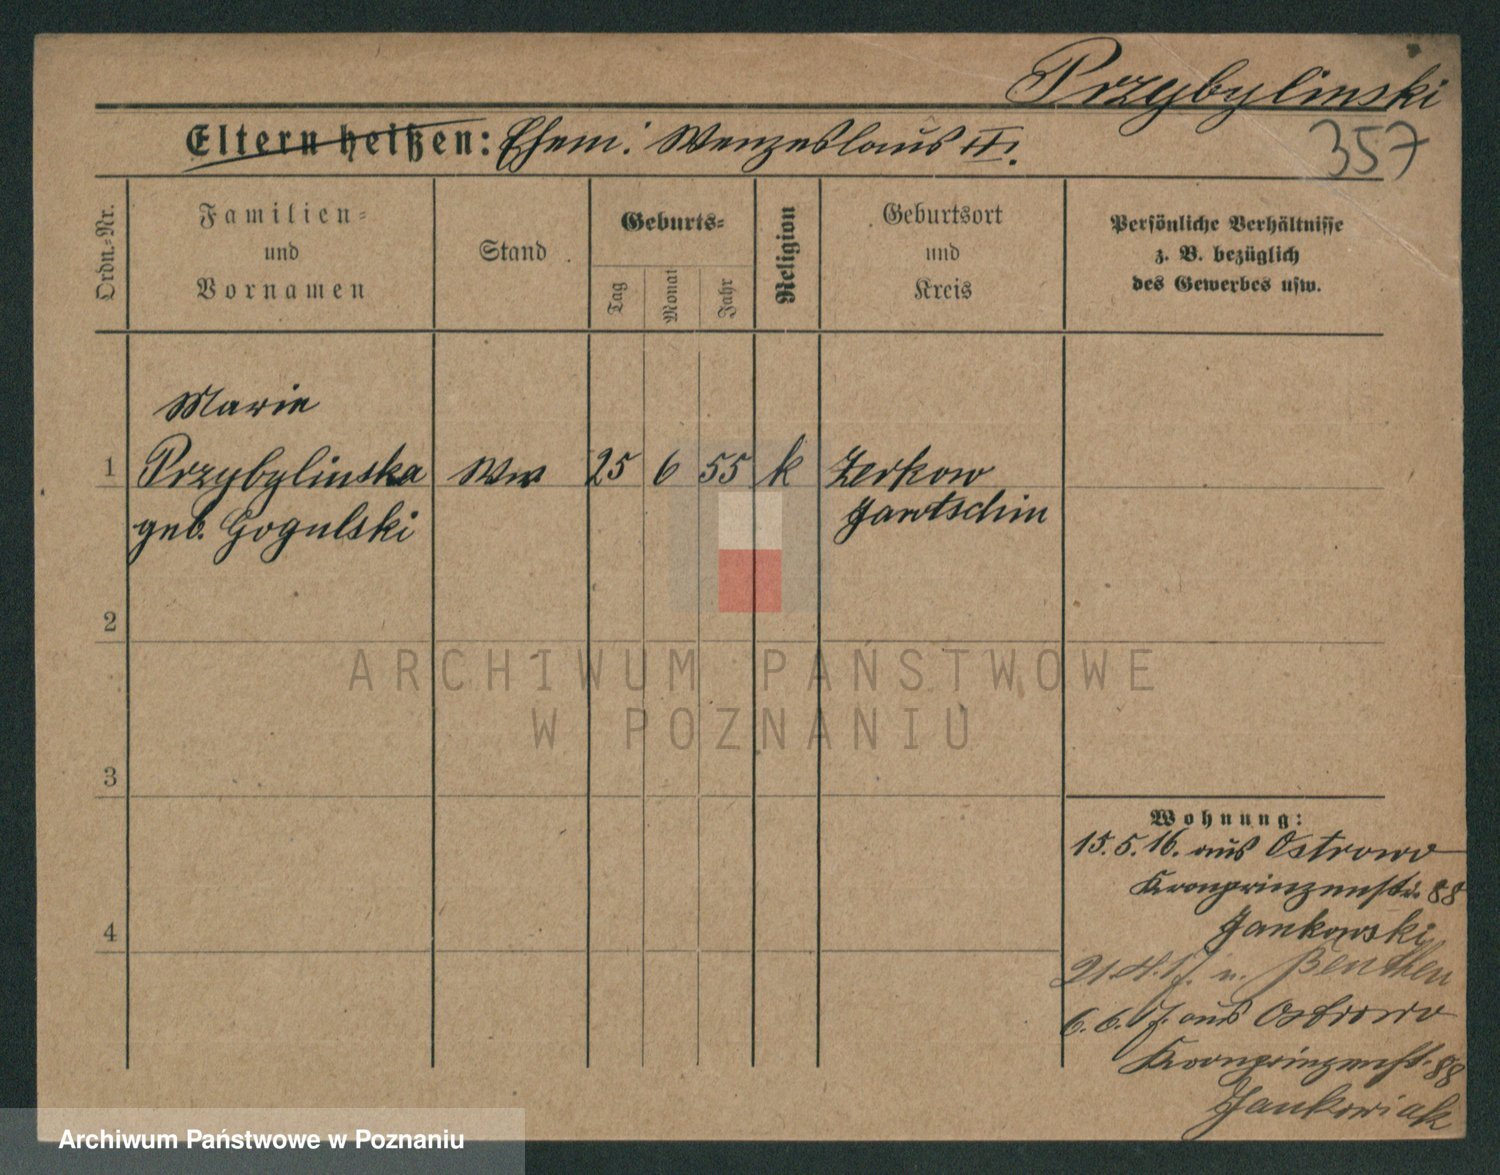 Przybylinski
Eltern heißen: Ehem. Wenzeslaus II.
357
Ordn.-Nr.
Familien-
und
Vornamen
Stand
Geburts-
Tag
Monat
Jahr
Religion
Geburtsort
und
Kreis
Persönliche Verhältnisse
z. B. bezüglich
des Gewerbes usw.
Marie
1 Przybylinska Ww 25 6 55 k Zerkow
geb. Gogulski Jarotschin
2
ARCHIWUM PAŃSTWOWE
W POZNANIU
3
Wohnung:
15.5.16. aus Ostrowo
Kronprinzenstr. 88
Jankowski
4
21.4.17. n. Beuthen
6.6.17. aus Ostrowo
Kronprinzenst. 88
Jankowiak
Archiwum Państwowe w Poznaniu